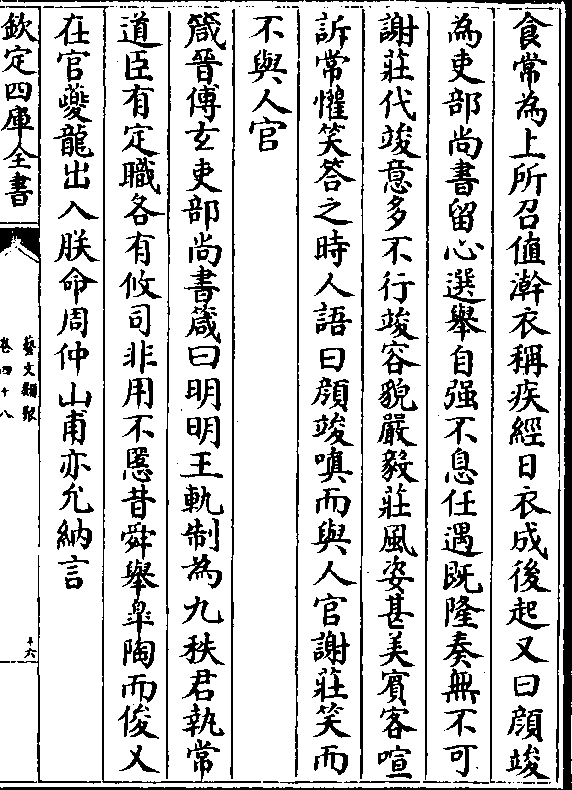 食常為上所召值澣衣稱疾經日衣成後起又曰顔竣
為吏部尚書留心選舉自强不息任遇既隆奏無不可
謝莊代竣意多不行竣容貌嚴毅莊風姿甚美賓客喧
訴常懽笑答之時人語曰顔竣嗔而與人官謝莊笑而
不與人官
箴晉傅玄吏部尚書箴曰明明王軌制為九秩君執常
道臣有定職各有攸司非用不慝昔舜舉臯陶而俊乂
在官夔龍出入朕命周仲山甫亦允納言
欽定四庫全書
藝文類聚
卷四十八
十六